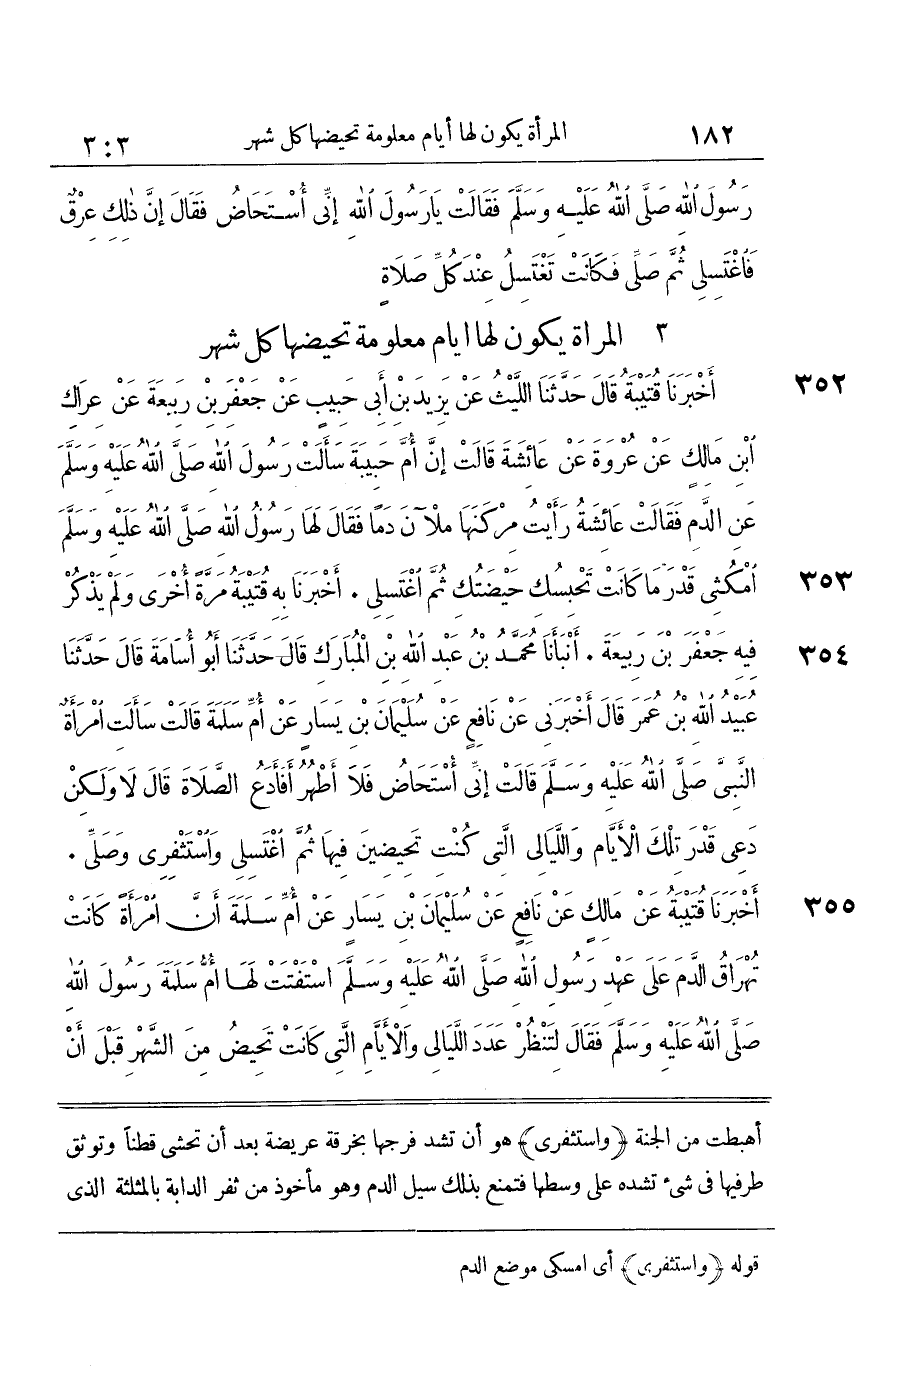 ١٨٢ المرأة يكون لها أيام معلومة تحيضها كل شهر ٣:٣
رَسُولَ اللّٰهِ صَلَّى اللّٰهُ عَلَيْهِ وَسَلَّمَ فَقَالَتْ يَارَسُولَ اللّٰهِ إِنِّى أُسْتَحَاضُ فَقَالَ إِنَّ ذٰلِكِ عِرْقٌ
فَاغْتَسِلِى ثُمَّ صَلِّى فَكَانَتْ تَغْتَسِلُ عِنْدَ كُلِّ صَلَاةٍ
٣ المرأة يكون لها ايام معلومة تحيضها كل شهر
٣٥٢ أَخْبَرَنَا قُتَيْبَةُ قَالَ حَدَّثَنَا اللَّيْثُ عَنْ يَزِيدَ بْنِ أَبِى حَبِيبٍ عَنْ جَعْفَرِ بْنِ رَبِيعَةَ عَنْ عِرَاكِ
ابْنِ مَالِكٍ عَنْ عُرْوَةَ عَنْ عَائِشَةَ قَالَتْ إِنَّ أُمَّ حَبِيبَةَ سَأَلَتْ رَسُولَ اللّٰهِ صَلَّى اللّٰهُ عَلَيْهِ وَسَلَّمَ
عَنِ الدَّمِ فَقَالَتْ عَائِشَةُ رَأَيْتُ مِرْكَنَهَا مَلْآنَ دَمًا فَقَالَ لَهَا رَسُولُ اللّٰهِ صَلَّى اللّٰهُ عَلَيْهِ وَسَلَّمَ
٣٥٣ امْكُثِى قَدْرَ مَا كَانَتْ تَحْبِسُكِ حَيْضَتُكِ ثُمَّ اغْتَسِلِى . أَخْبَرَنَا بِهِ قُتَيْبَةُ مَرَّةً أُخْرَى وَلَمْ يَذْكُرْ
٣٥٤ فِيهِ جَعْفَرَ بْنَ رَبِيعَةَ . أَنْبَأَنَا مُحَمَّدُ بْنُ عَبْدِ اللّٰهِ بْنِ الْمُبَارَكِ قَالَ حَدَّثَنَا أَبُو أُسَامَةَ قَالَ حَدَّثَنَا
عُبَيْدُ اللّٰهِ بْنُ عُمَرَ قَالَ أَخْبَرَنِى عَنْ نَافِعٍ عَنْ سُلَيْمَانَ بْنِ يَسَارٍ عَنْ أُمِّ سَلَمَةَ قَالَتْ سَأَلَتِ امْرَأَةٌ
النَّبِىَّ صَلَّى اللّٰهُ عَلَيْهِ وَسَلَّمَ قَالَتْ إِنِّى أُسْتَحَاضُ فَلَا أَطْهُرُ أَفَأَدَعُ الصَّلَاةَ قَالَ لَا وَلَكِنْ
دَعِى قَدْرَ تِلْكَ الْأَيَّامِ وَاللَّيَالِى الَّتِى كُنْتِ تَحِيضِينَ فِيهَا ثُمَّ اغْتَسِلِى وَاسْتَثْفِرِى وَصَلِّى .
٣٥٥ أَخْبَرَنَا قُتَيْبَةُ عَنْ مَالِكٍ عَنْ نَافِعٍ عَنْ سُلَيْمَانَ بْنِ يَسَارٍ عَنْ أُمِّ سَلَمَةَ أَنَّ امْرَأَةً كَانَتْ
تُهَرَاقُ الدَّمَ عَلَى عَهْدِ رَسُولِ اللّٰهِ صَلَّى اللّٰهُ عَلَيْهِ وَسَلَّمَ اسْتَفْتَتْ لَهَا أُمُّ سَلَمَةَ رَسُولَ اللّٰهِ
صَلَّى اللّٰهُ عَلَيْهِ وَسَلَّمَ فَقَالَ لِتَنْظُرْ عَدَدَ اللَّيَالِى وَالْأَيَّامِ الَّتِى كَانَتْ تَحِيضُ مِنَ الشَّهْرِ قَبْلَ أَنْ
أهبطت من الجنة ﴿واستثفرى﴾ هو أن تشد فرجها بخرقة عريضة بعد أن تحشى قطناً وتوثق
طرفيها فى شىء تشده على وسطها فتمنع بذلك سيل الدم وهو مأخوذ من ثفر الدابة بالمثلثة الذى
قوله ﴿واستثفرى﴾ أى امسكى موضع الدم